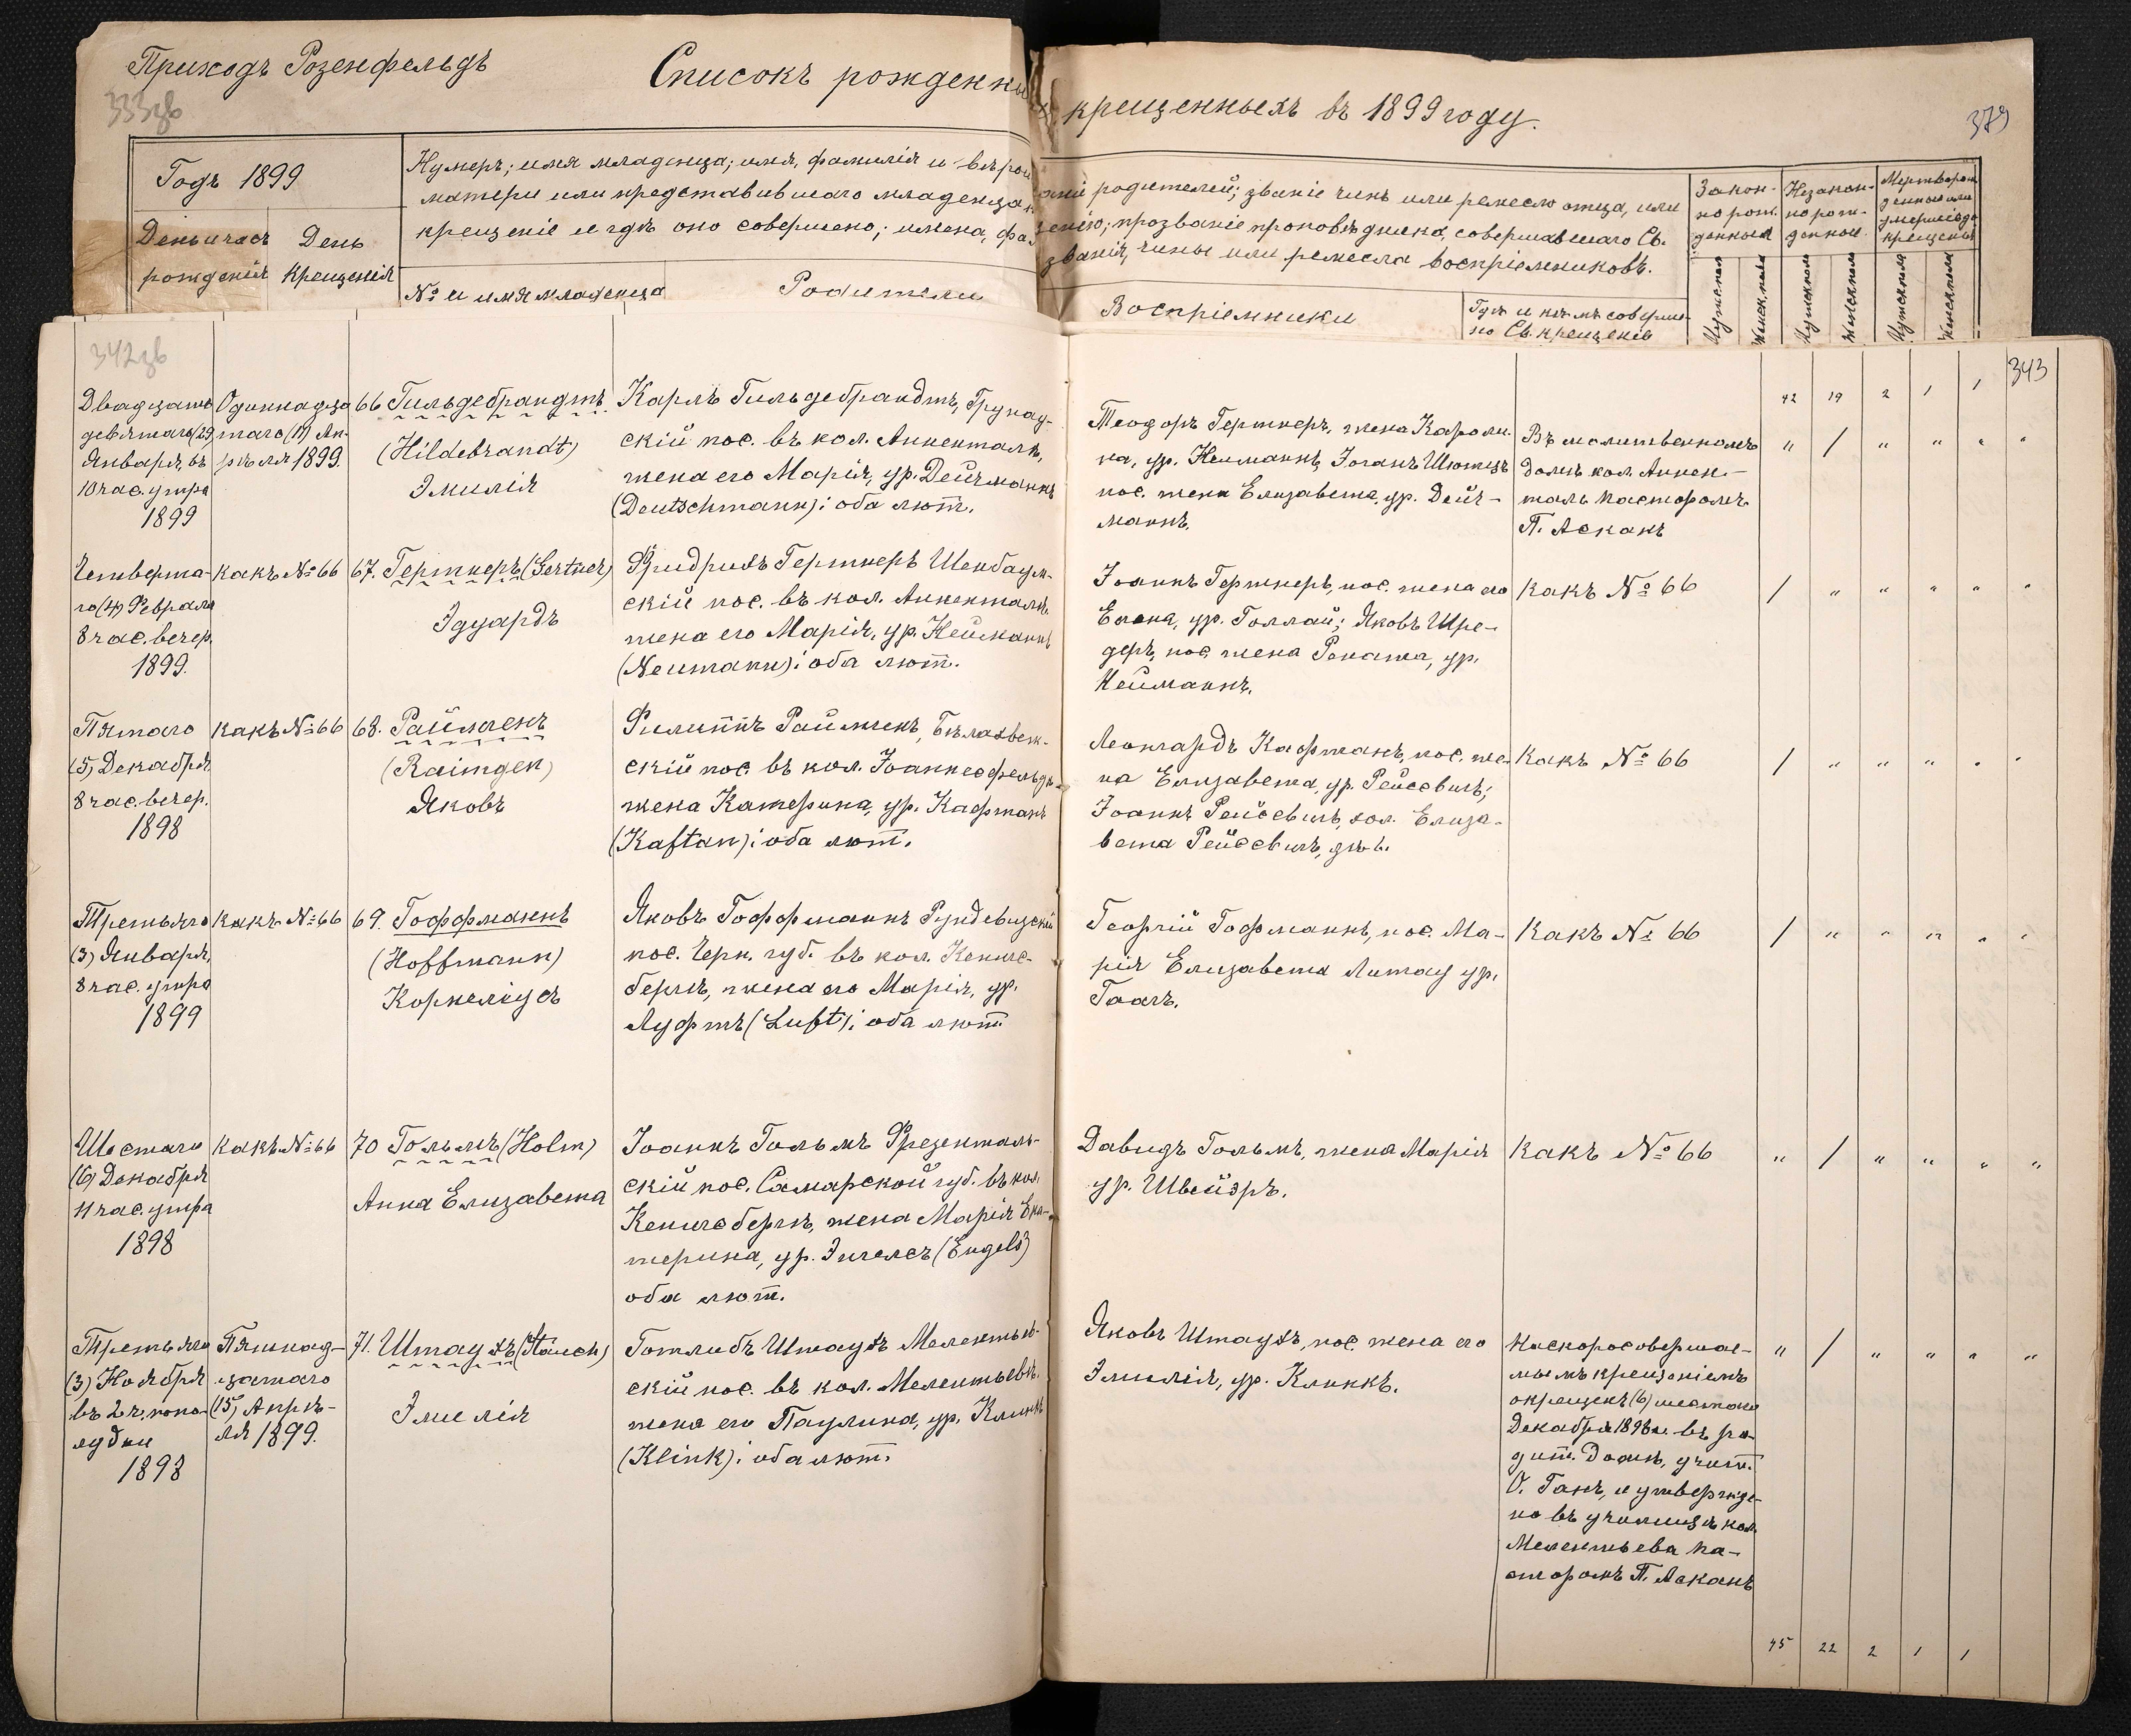 Приходъ Розенфельдъ
Списокъ рожденны
крещенныхъ въ 1899 году.
333об
379
Годъ 1899
День и часъ рожденія
День крещенія
Нумеръ; имя младенца; имя, фамилія и вѣрои
матери или представившаго младенца к
крещеніе и гдѣ оно совершено; имена, фа
№ и имя младенца
Родители
родителей; званіе чинъ или ремесло отца, или
прозваніе проповѣдника, совершавшаго Св.
званія, чины или ремесла воспріемниковъ.
Воспріемники
Гдѣ и кѣмъ соверше-
но Св. крещеніе
Закон-
но рож-
денныя
Незакон-
но рож-
денные
Мертворож
денные или
умершіе до
крещенія
Мужескаго
Женскаго
Мужескаго
Женскаго
Мужескаго
Женскаго
342об
343
42 19 2 1 1
Двадцать
девятаго (29)
Января, въ
10 час. утра
1899
Одиннадца
таго (11) Ап-
рѣля 1899.
66 Гильдебрандтъ
(Hildebrandt)
Эмилія
Карлъ Гильдебрандтъ, Грунау-
скій пос. въ кол. Анненталѣ,
жена его Марія, ур. Дейчманнъ
(Deutschmann); оба лют.
Теодоръ Гертнеръ, жена Кароли-
на, ур. Нейманнъ, Іоганъ Шютцъ
пос. жена Елизавета, ур. Дейч-
маннъ.
Въ молитвенномъ
домѣ кол. Аннен-
таль Пасторомъ
П. Асканъ
" / " " " "
Четверта-
го (4) Февраля
8 час. вечер.
1899.
какъ № 66
67. Гертнеръ (Gertner)
Эдуардъ
Фридрихъ Гертнеръ Шенбаум-
скій пос. въ кол. Анненталѣ.
жена его Марія, ур. Нейманнъ
(Neumann); оба лют.
Іоаннъ Гертнеръ, пос. жена его
Елена, ур. Голлай; Яковъ Шре-
деръ, пос. жена Рената, ур.
Нейманнъ.
какъ № 66
/ " " " " "
Пятаго
(5) Декабря
8 час. вечер.
1898
какъ № 66
68. Раймгенъ
(Raimgen)
Яковъ
Филиппъ Раймгенъ, Бѣлахвеж-
скій пос. въ кол. Іоаннесфельдъ
жена Катерина, ур. Кафтанъ
(Kaftan); оба лют.
Леонгардъ Кафтанъ, пос. же-
на Елизавета, ур. Рейсвихъ;
Іоаннъ Рейсвихъ, хол. Елиза-
вета Рейсвихъ, дѣв.
Какъ № 66
/ " " " " "
Третьяго
(3) Января,
8 час. утра
1899
какъ № 66
69. Гоффманнъ
(Hoffmann)
Корнеліусъ
Яковъ Гоффманнъ Рундевизскій
пос. Черн. губ. въ кол. Кениго-
бергѣ, жена его Марія, ур.
Луфтъ (Luft); оба лют.
Георгій Гофманнъ, пос. Ма-
рія Елизавета Литау ур.
Гаагъ.
Какъ № 66
/ " " " " "
Шестаго
(6) Декабря
11 час. утра
1898
какъ № 66
70 Гольмъ (Holm)
Анна Елизавета
Іоаннъ Гольмъ Фрезенталь-
скій пос. Самарской губ. въ кол.
Кенигсбергѣ, жена Марія Ека-
терина, ур. Энгельсъ (Engels)
оба лют.
Давидъ Гольмъ, жена Марія
ур. Швейзръ.
Какъ № 66
" / " " " "
Третьяго
(3) Ноября
въ 2 ч. попо-
лудни
1898
Пятнад-
цатаго
(15) Апрѣ-
ля 1899.
71. Штаухъ (Stauch)
Эмилія
Готлибъ Штаухъ Мелентьев-
скій пос. въ кол. Мелентьевѣ.
жена его Паулина, ур. Клинкъ
(Klink); оба лют.
Яковъ Штаухъ, пос. жена его
Эмилія, ур. Клинкъ.
Наскоросовершае-
мымъ крещеніемъ
окрещенъ (6) шестаго
Декабря 1898 г. въ ро-
дит. домѣ, учит.
О. Ганъ, и утвержде-
но въ училищѣ кол.
Мелентьева Па-
сторомъ П. Асканъ
" / " " " "
45 22 2 1 1